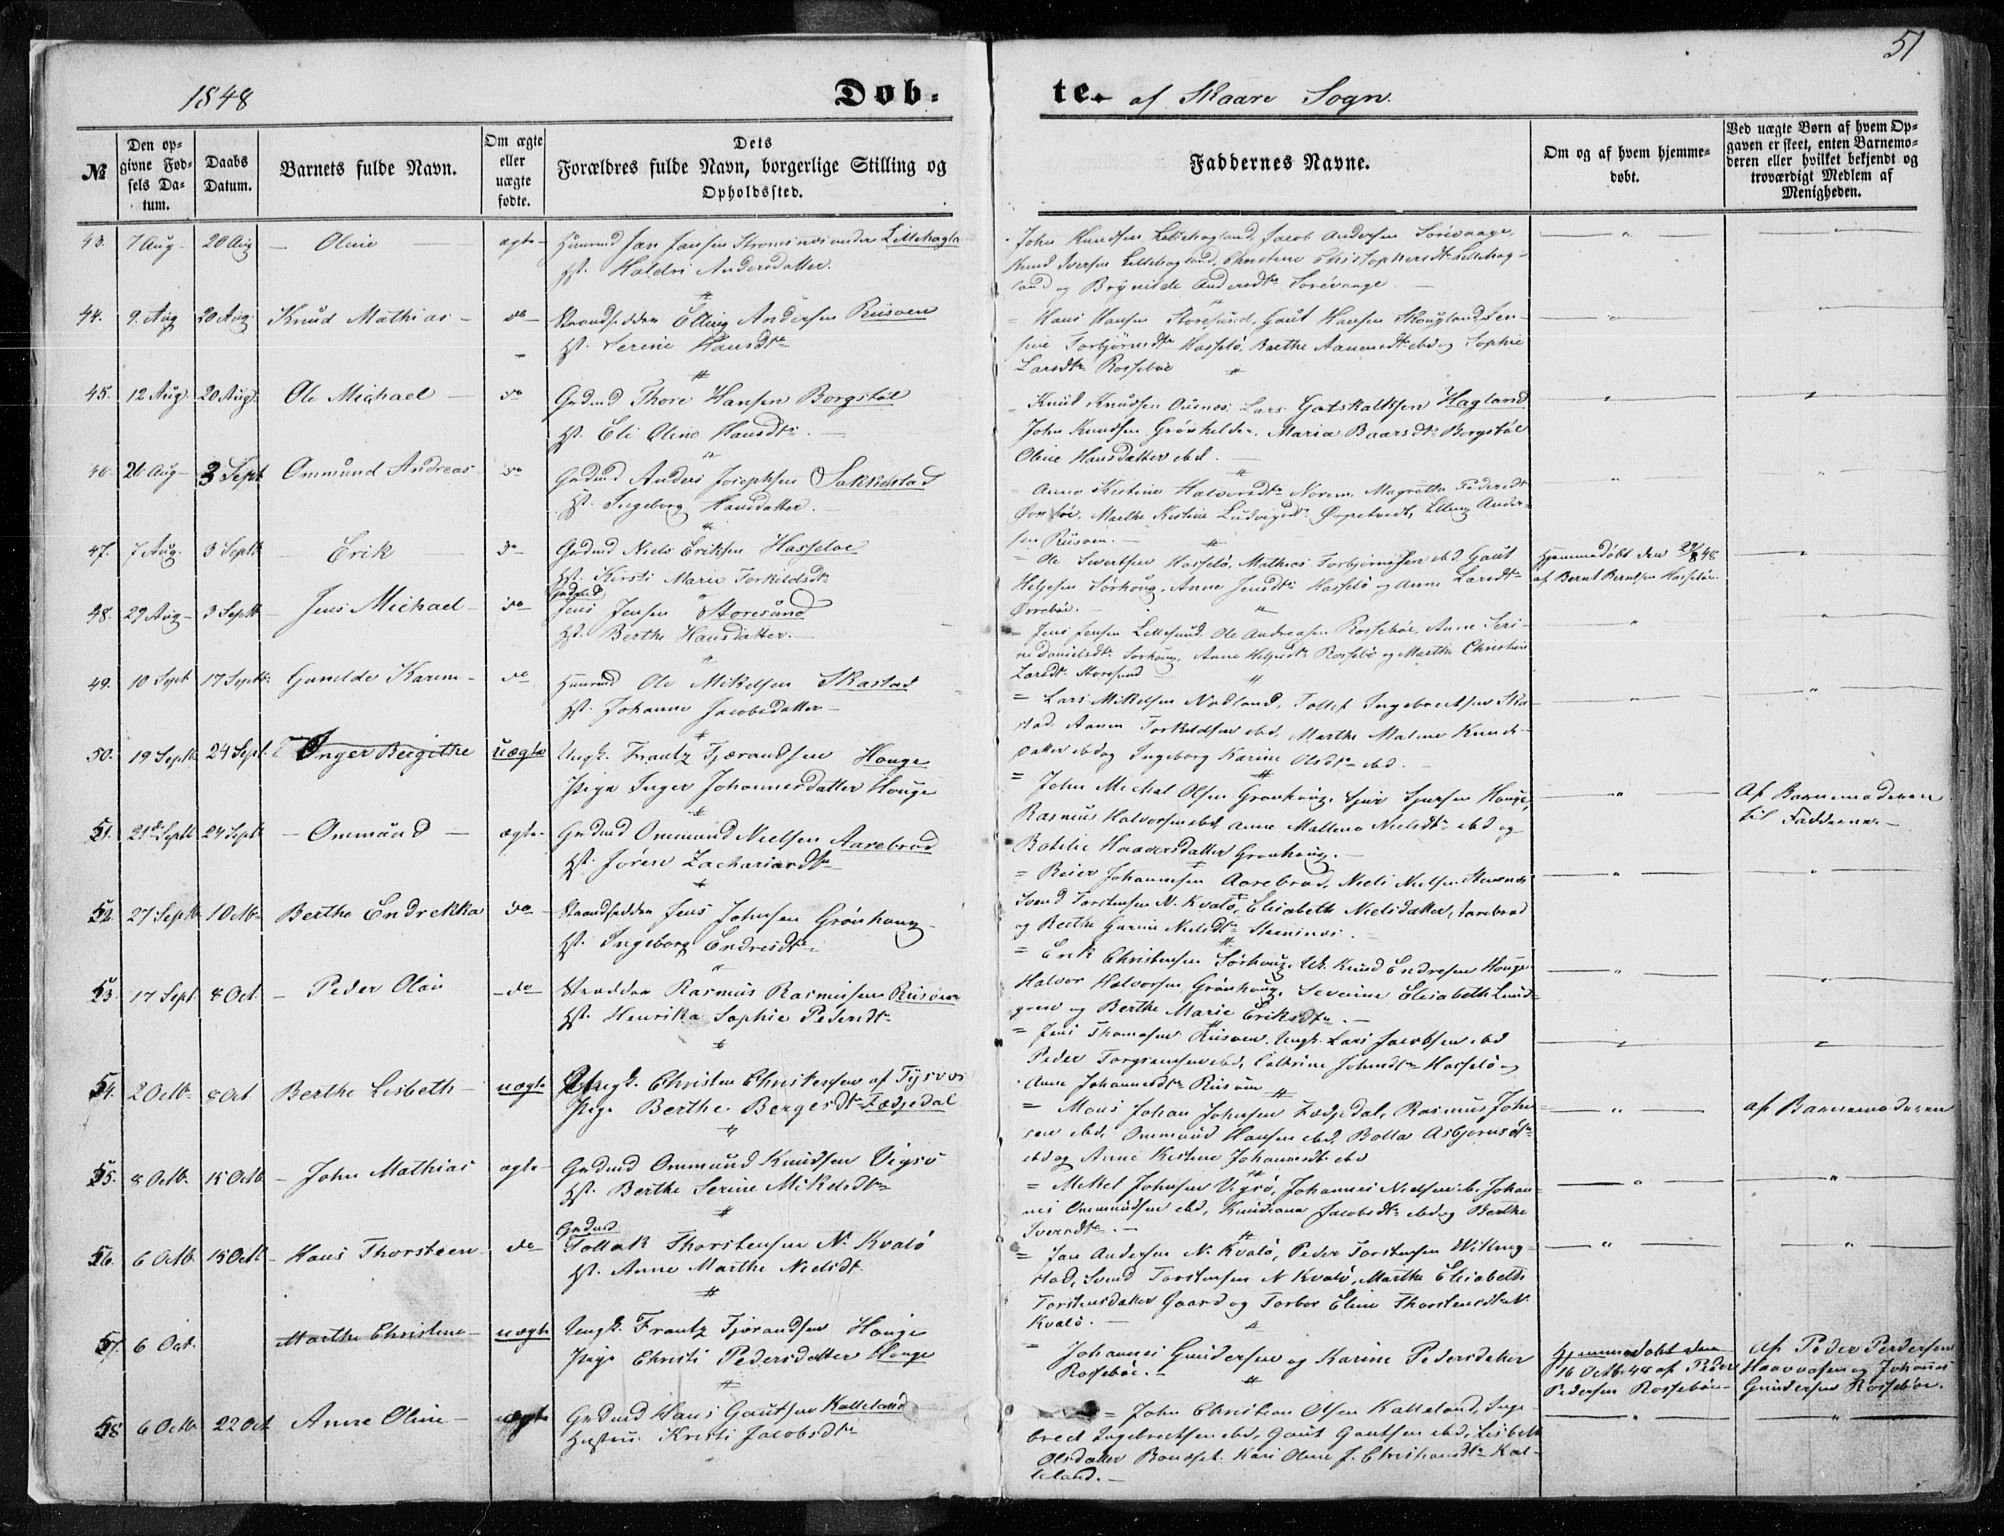 51
1848
Døb-
te.
af Skaare Sogn.
№
Den op-
givne Fød-
sels Da-
tum.
Daabs
Datum.
Barnets fulde Navn.
Om ægte
eller
uægte
fødte.
Dets
Forældres fulde Navn, borgerlige Stilling og
Opholdssted.
Faddernes Navne.
Om og af hvem hjemme-
døbt.
Ved uægte Børn af hvem Op-
gaven er skeet, enten Barnemo-
deren eller hvilket bekjendt og
troværdigt Medlem af
Menigheden.
43. 7 Aug. 20 Aug — Oline — ægte Huusmd Jan Jansen Stromsnes under Lillehagla
Hst. Andersdatter.
John Knudsen Lillehagland, Jacob Andersen Sørevaage,
Knud Iversen Lillehagland, Christine Christophersdtr Lillehag-
land og Brynilde Andersdtr Sørevaage.
44. 9. Aug 20 Aug. Knud Mathias — do Strandsidder Elling Andersen Risøen
Hst. Serine Hansdtr
Hans Hansen Storesund, Gaut Hansen
Torbjørnsdtr Hasselø, Berthe ebd og Sophie
Larsdtr Rossebøe
45. 12 Aug. 20 Aug. Ole Michael — do Grdmd Thore Hansen Borgstøl
Hst. Eli Oline Hansdtr.
Knud Knudsen Lars Gotskalksen Hagland
John Knudsen Maria Baarsdtr Borgstøl
Oline Hansdatter ebd.
46. 26 Aug — 3 Sept Ommund Andreas do Grdmd Anders Josephsen Sakkestad
Hst. Ingeborg Hansdatter.
Anne Kistine Halvorsdtr Norem, Magretta Pedersdtr
Marthe Kistine Ludvigsdtr Elling Ander-
sen Risøen.
47. 7 Aug. 3 Septb — Erik — do Grdmd Niels Eriksen Hasseløe
Hst. Kirsti Marie Torkildsdtr
Ole Sivertsen Hasselø, Mathias Torbjørnsen ebd Gaut
Helgesen Sørhoug, Anne Hasselø og Anne Larsdtr
Hjemmedøbt den 27/8 48
af Bernt Berntsen Hasseløe
48. 29 Aug — 3 Septb Jens Michael — do Grdmd
Jens Jensen Storesund
Hst. Berthe Hansdatter.
Jens Jensen Lillesund, Ole Andreasen Rossebøe, Anne Seri-
ne Danielsdtr Sørhoug, Anne Helgesdtr Rossebø og Marthe Christine
Larsdtr Storesund
49. 10 Sept 17 Septb. Gunilde Karine — do Huusmd Ole Mikelsen Skastad
Hst. Johanne Jacobsdatter
Lars Mikelsen Nodland, Tollef Ingebretsen Ska-
stad, Torkildsen ebd, Marthe Malene Knuds-
datter ebd og Ingeborg Karine Olsdtr ebd.
50. 19 Septb. 24 Sept. Inger Birgithe uægte Ungk. Frantz Fjærandsen Houge
Pige Inger Johannesdatter Houge
John Michal Olsen Grønhoug, Sjur Sjursen Houge,
Rasmus Halvorsen ebd, Anne Mallene Nielsdtr ebd og
Botilie Haavarsdatter Grønhoug.
Af Barnemoderen
til Fadderne.
51. 21de Septb 24 Septb — Ommund — ægte Grdmd Ommund Nielsen Aarebrod
Hst. Jøren Zachariasdtr
Reier Johannesen Aarebrod, Niels Nielsen
Svend Torstensen N. Kvalø, Elisabeth Nielsdatter, Aarebrod
og Berthe Gurine Nielsdtr
52 27 Septb 1 Octb. Berthe Endrekka do Strandsidder Jens Johnsen Grønhoug
Hst. Ingeborg Endresdtr
Erik Christensen Sørhoug, Uk. Knud Endresen Houge
Halvor Halvorsen Grønhoug, Severine Elisabeth Lund-
gren og Berthe Marie Eriksdtr.
53. 17 Sept. 8 Oct. — Peder Olai do Rasmus Rasmussen Risøen
Hst. Henrika Sophie Pedersdtr
Jens Thomasen Risøen, Ungk. Lars Jacobsen ebd
Peder Torgersen ebd, Catrine Johnsdtr Hasselø og
Anne Johannesdtr Risøen
54. 2 Octb. 8 Oct. Berthe Lisbeth — uægte Ungk. Christen Christensen af Tysvær
Pige Berthe Bergesdtr Fædjedal
Mons Johan Johnsen Fædjedal, Rasmus John-
sen ebd, Ommund Hansen ebd, Bolla Asbjørnsdtr
ebd og Anne Kistine Johannesdtr ebd
af Barnemoderen
55. 8 Octb. 15 Octb — John Mathias ægte Grdmd Ommund Knudsen Vigsø
Hst. Berthe Serine Mikelsdtr
Mikkel Johnsen Vigsø, Johannes Nielsen ib. Johan-
nes Ommundsen ebd, Knudiane Jacobsdtr ebd og Berthe
Iversdtr.
56. 6 Octb. 15 Octb — Hans Thorsteen do Grdmd
Tollak Thorstensen N. Kvalø
Hst. Anne Marthe Nielsdtr.
Jan Andersen N. Kvalø, Peder Torstensen Willing-
stad, Svend Torstensen N Kvalø, Marthe Elisabeth
Torstensdatter Gaard og Torbor Eline Thorstensdtr N.
Kvalø.
57. 6 Oct. Marthe Christine — uægte Ungk. Frantz Fjærandsen Houge
Pige Christi Pedersdatter Houge
Johannes Gundersen og Karine Pedersdatter
Rossebøe.
Hjemmedøbt den
16 Octb. 48 af Peder
Pedersen Rossebøe
af Peder Pedersen
og Johannes
Gundersen Rossebøe.
58 6 Octb. 22 Oct Anne Oline — ægte Grdmd Hans Gautsen Kalleland
Hustru Kristi Jacobsdtr
John Christian Olsen Kalleland, Inge-
bret Ingebretsen ebd, Gaut Gautsen ebd, Lisbeth
Olsdatter Kari Oline J. Christiansdtr Kal-
leland.